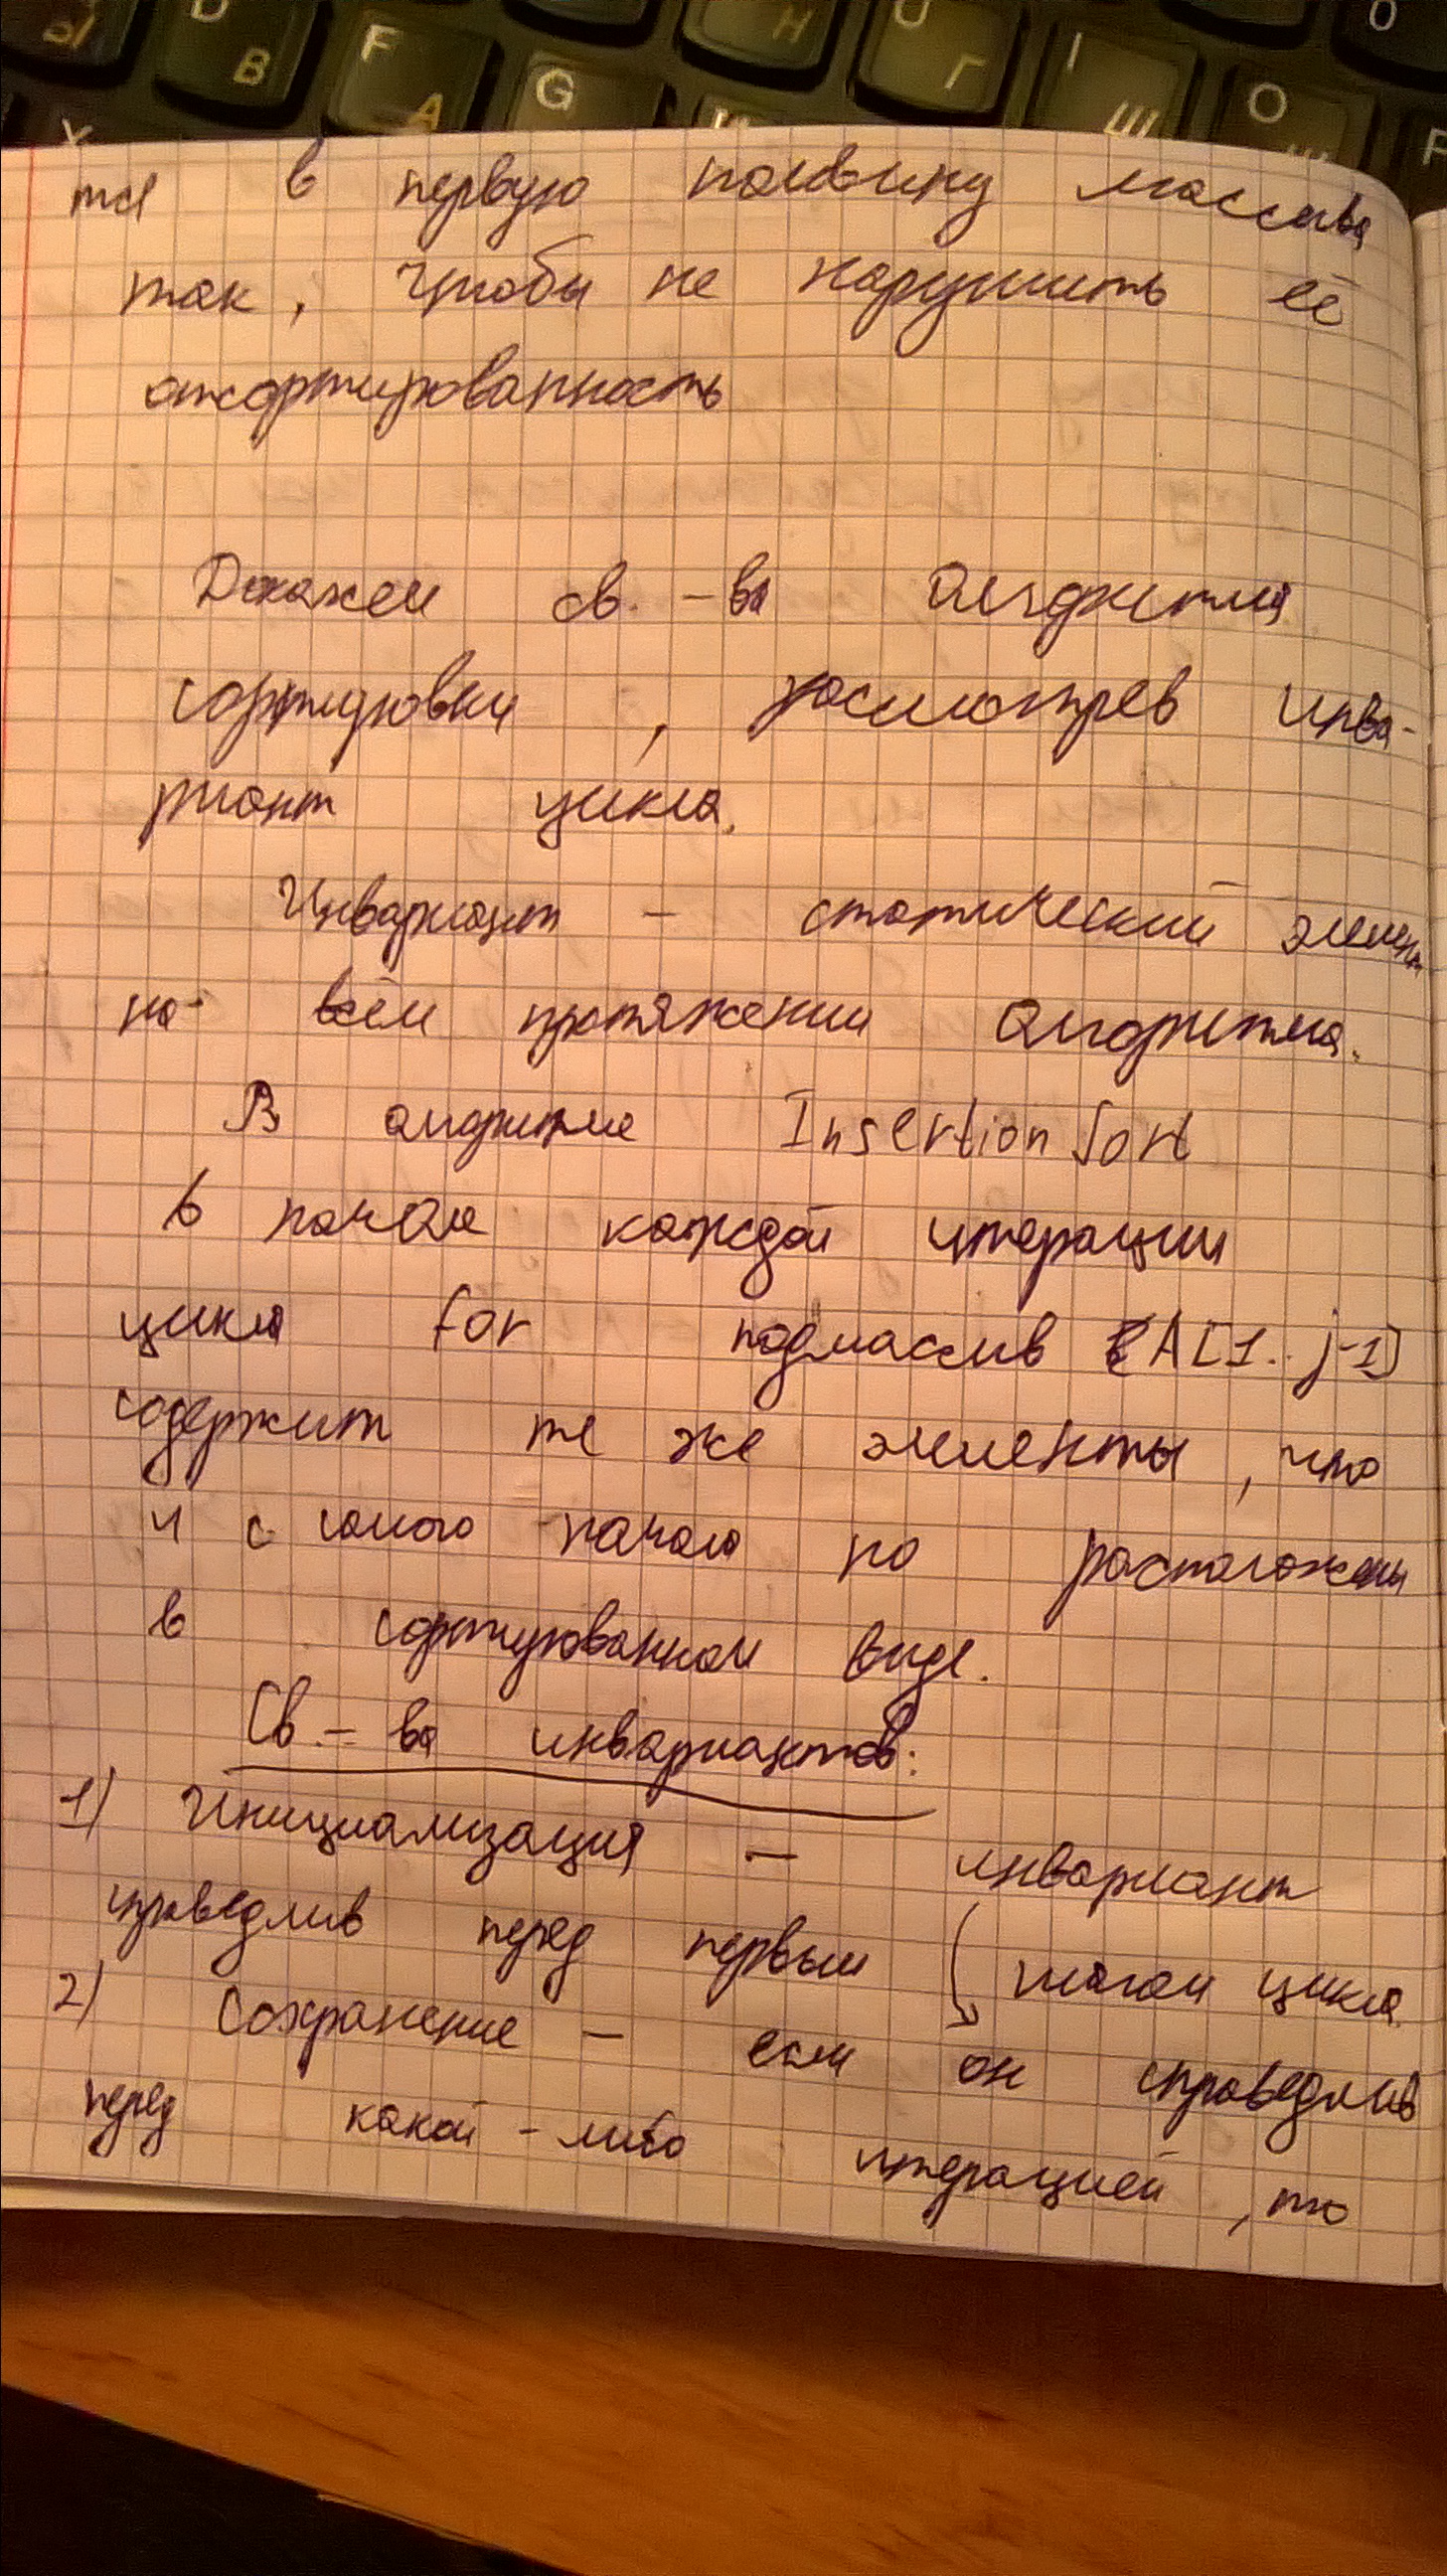 Ы D В F А G Н U Г I Ш O
тся в первую половину массива
так, чтобы не нарушить её
отсортированность
Докажем св.-ва алгоритма
сортировки, рассмотрев инва-
риант цикла.
Инвариант - статический элемент
на всём протяжении алгоритма.
В алгоритме Insertion Sort
в начале каждой итерации
цикла for подмассив A[1..j-1]
содержит те же элементы, что
и с самого начала но расположены
в сортированном виде.
Св-ва инвариантов:
1) Инициализация - инвариант
справедлив перед первым шагом цикла.
2) Сохранение - если он справедлив
перед какой-либо итерацией, то